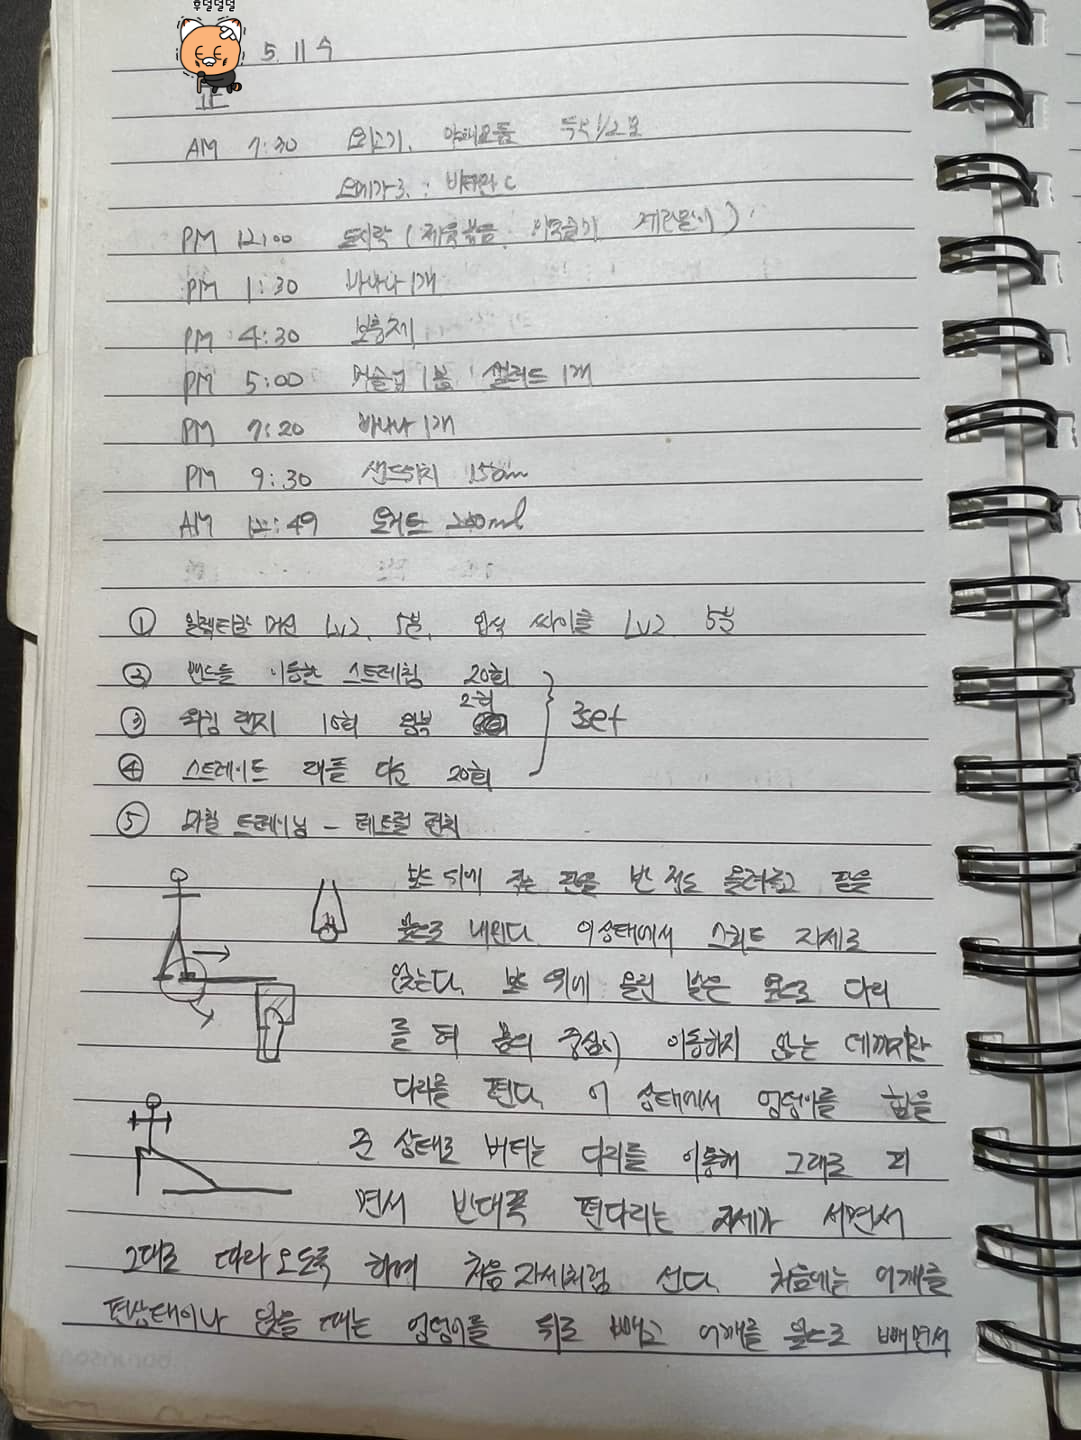 후덜덜덜
5. 11 수
AM 7:30 묘고기. 두부 1/2모
오메가3. : 비타민 C
PM 12:00 도시락 (제육볶음. 계란말이)
PM 1:30 바나나 1개
PM 4:30 보충제
PM 5:00 머슬밀 1봉 샐러드 1개
PM 7:20 바나나 1개
PM 9:30 샌드위치 15cm
AM 12:49 요거트 200ml
① 일렉티컬 머신 Lv2. 5분. 입식 싸이클 Lv2 5분
② 밴드를 이용한 스트레칭 20회
③ 워킹 런지 10회 왕복 2회
3set
④ 스트레이트 암풀 다운 20회
⑤ 자칼 트레이닝 – 레트럴 런지
보드 위에 한 발을 반 정도 올려놓고 팔을
옆으로 내민다. 이 상태에서 스쿼트 자세로
앉는다. 보드 위에 올린 발은 옆으로 다리
를 펴 몸의 중심이 이동하지 않는 데까지만
다리를 편다. 이 상태에서 엉덩이를 힘을
준 상태로 버티는 다리를 이용해 그대로 펴
면서 반대쪽 편다리는 자세가 서면서
그대로 따라오도록 하여 처음 자세처럼 선다. 처음에는 어깨를
편상태이나 앉을 때는 엉덩이를 뒤로 빼고 어깨를 앞으로 빼면서